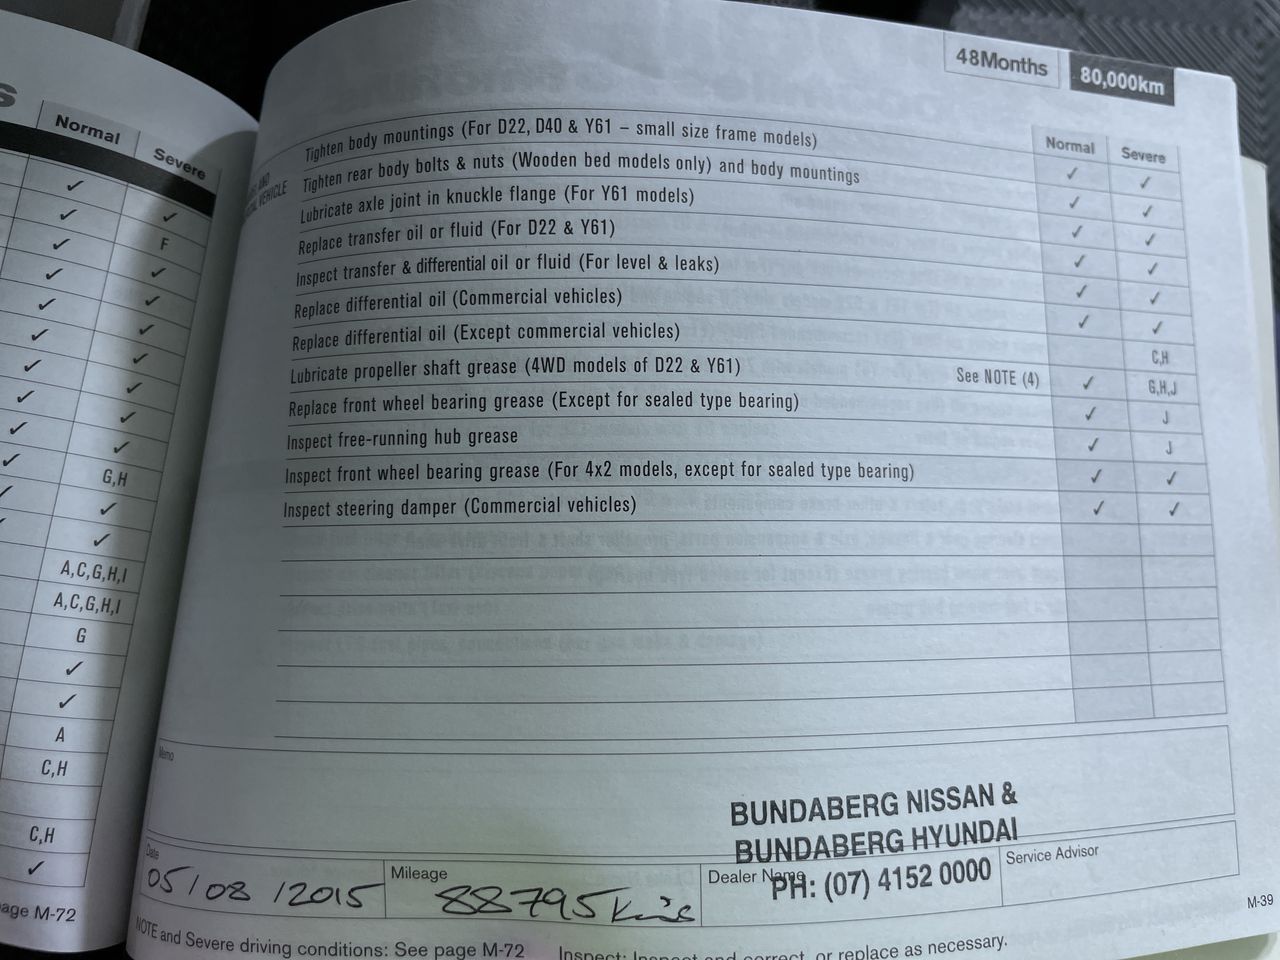 s
Normal Severe
✓
✓ ✓
✓ F
✓ ✓
✓ ✓
✓ ✓
✓ ✓
✓ ✓
✓ ✓
✓ ✓
G,H
✓
✓
A,C,G,H,I
A,C,G,H,I
G
✓
✓
A
C,H
C,H
✓
age M-72
48Months 80,000km
AND
VEHICLE
Normal Severe
Tighten body mountings (For D22, D40 & Y61 – small size frame models) ✓ ✓
Tighten rear body bolts & nuts (Wooden bed models only) and body mountings ✓ ✓
Lubricate axle joint in knuckle flange (For Y61 models) ✓ ✓
Replace transfer oil or fluid (For D22 & Y61) ✓ ✓
Inspect transfer & differential oil or fluid (For level & leaks) ✓ ✓
Replace differential oil (Commercial vehicles) ✓ ✓
Replace differential oil (Except commercial vehicles) C,H
Lubricate propeller shaft grease (4WD models of D22 & Y61) See NOTE (4) ✓ G,H,J
Replace front wheel bearing grease (Except for sealed type bearing) ✓ J
Inspect free-running hub grease ✓ J
Inspect front wheel bearing grease (For 4x2 models, except for sealed type bearing) ✓ ✓
Inspect steering damper (Commercial vehicles) ✓ ✓
Memo
BUNDABERG NISSAN &
BUNDABERG HYUNDAI
PH: (07) 4152 0000
Date 05/08/2015
Mileage 88795 Kms
Dealer Name
Service Advisor
M-39
NOTE and Severe driving conditions: See page M-72 Inspect: Inspect and correct, or replace as necessary.